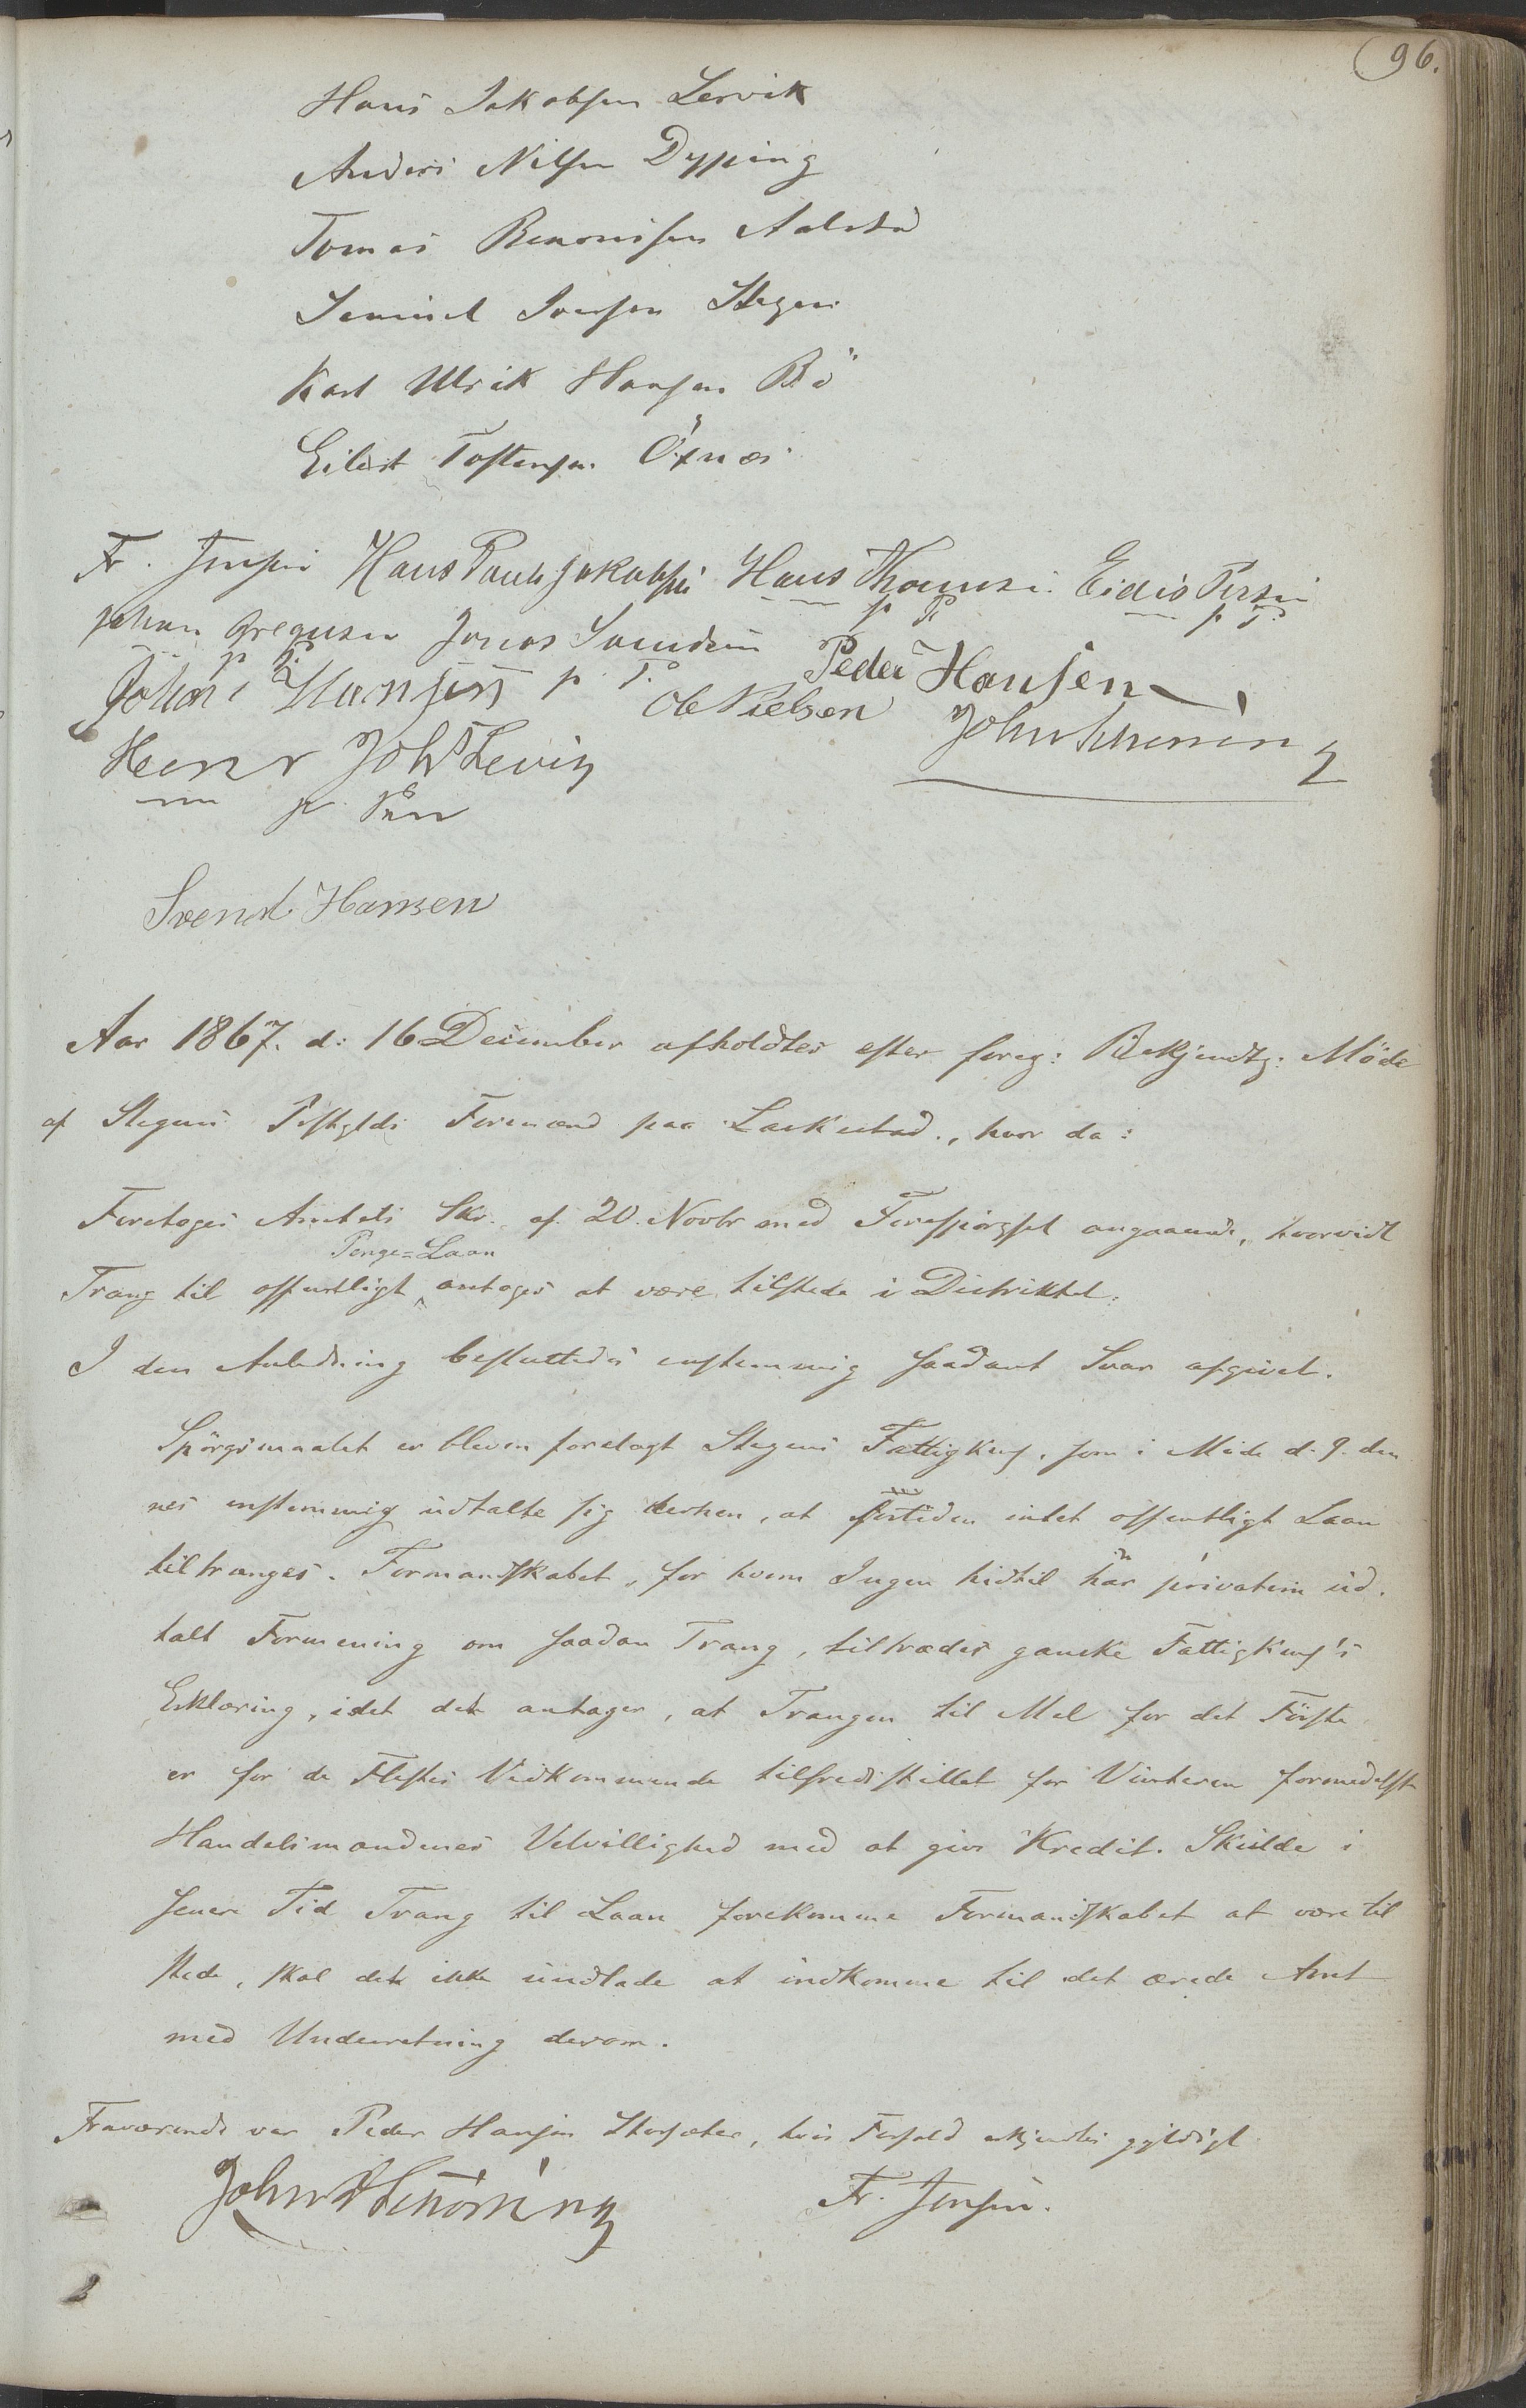 96.
Hans Jakobsen Lervik
Anders Nilsen Dypping
Tomas Benonisen Aalstad
Karl Ulrik Hansen Bö
Eilert Tostensen Öxnæs
Fr. Jensen Hans Paul Jakobsen Hans Thomesen Eidis Persen
p P p P
Johan Gregusen Jonas Samdsen Peder Hansen
p P
Johan Hansen p. P. Ole Nielsen John Schøning
Henr Joh Levig
m p Pen
Svend Hansen
Aar 1867. d: 16 December afholdtes efter foreg: Bekjendtg: Møde
af Stegens Præstgjlds Formænd paa Laskestad, hvor da:
Foretoges Amtets Skr. af 20. Novbr med Forespörgsel angaaende, hvorvidt
Penge-Laan
Trang til offentligt antoges at være tilstede i Distriktet.
I den Anledning besluttedes enstemmig saadant Svar afgivet.
Spörgsmaalet er bleven forelagt Stegens Fattigkms, som i Möde d. 9. den
nes enstemmig udtalte sig derhen, at fortiden intet offentligt Laan
tiltrænges. Formandskabet, for hvem Ingen hidtil har privatim ud-
talt Formening om saadan Trang, tiltræder ganske Fattigkms's
Erklæring, idet det antager, at Trangen til Mel for det Förste
er for de Flestes Vedkommende tilfredsstillet for Vinteren formedelst
Handelsmændenes Velvillighed med at give Kredit. Skulde i
senere Tid Trang til Laan forekomme Formandskabet at være til
stede, skal det ikke undlade at indkomme til det ærede Amt
med Underretning derom.
Fraværende var Peder Hansen Storsæter, hvis Forfald erkjendtes gyldigt
John Schøning Fr. Jensen.